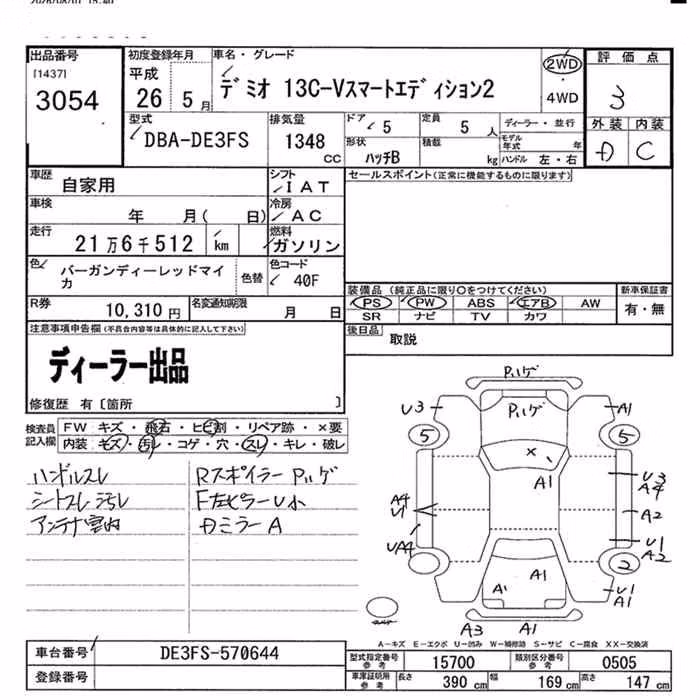 出品番号
[1437]
3054
初度登録年月
平成
26 5月
車名・グレード
デミオ 13C-Vスマートエディション2
2WD
4WD
評価点
3
外装 内装
D C
型式
DBA-DE3FS
排気量
1348
CC
ドア 5
形状
ハッチB
定員 5 人
積載 kg
ディーラー・並行
モデル年式 年
ハンドル 左・右
車歴 自家用
シフト
I AT
セールスポイント(正常に機能するものに限ります)
車検 年 月( 日)
冷房
AC
走行 21万6千512 km
燃料
ガソリン
色 バーガンディーレッドマイカ
色替
色コード
40F
装備品(純正品に限り○をつけてください)
PS PW ABS エアB AW
SR ナビ TV カワ
新車保証書
有・無
R券 10,310円
名変通知期限 月 日
後日品
取説
注意事項申告欄(不具合内容等は具体的に記入して下さい)
ディーラー出品
修復歴 有〔箇所 〕
検査員記入欄
FW キズ・飛石・ヒビ割・リペア跡・×要
内装・キズ・汚レ・コゲ・穴・スレ・キレ・破レ
ハンドルスレ
シートスレ汚レ
Rスポイラー Pハゲ
F左ピラーU小
Dミラー A
Pハゲ
Pハゲ
U3
A1
5
5
×
A1
U3
A4
A4
U1
A2
UA4
U1
A2
2
A1
A1
U1
A1
A3
A1
A-キズ E-エクボ U-凹み W-補修跡 S-サビ C-腐食 XX-交換済
車台番号 DE3FS-570644
登録番号
型式指定番号
参考
15700
類別区分番号
参考
0505
車庫証明用
参考
長さ 390 cm 幅 169 cm 高さ 147 cm